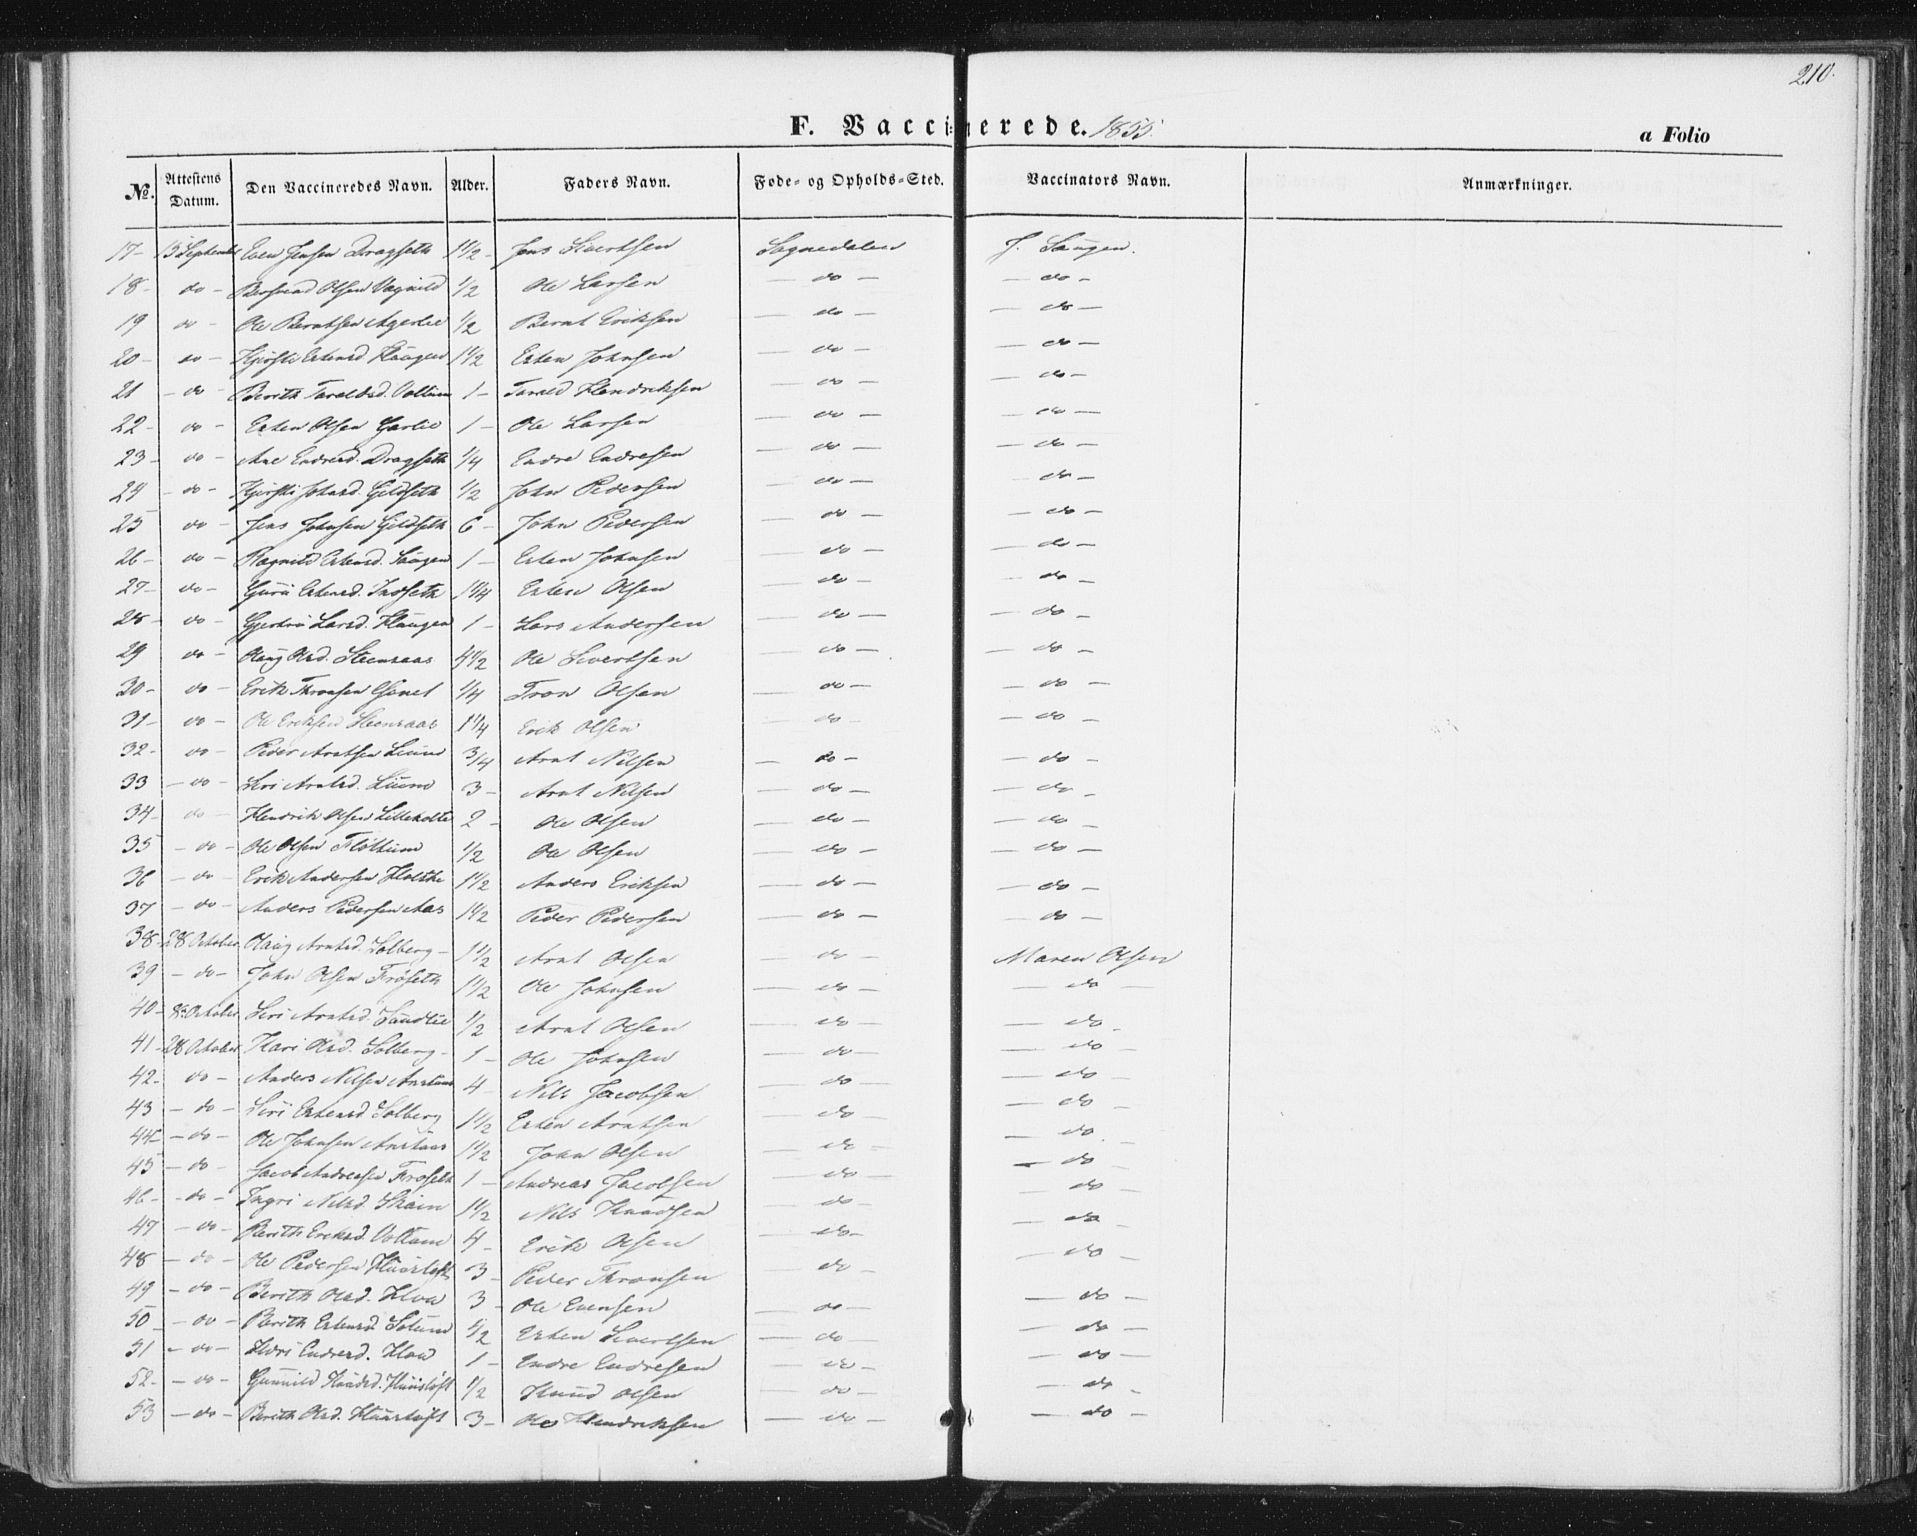 210.
F. Vaccinerede. 1855.
a Folio
№. Attestens Datum. Den Vaccineredes Navn. Alder. Faders Navn. Føde- og Opholds-Sted. Vaccinators Navn. Anmærkninger.
17- 15 September Even Jensen Dragseth 1 1/2 - Jens Sivertsen Sognedalen J. Haugen.
18- do - Olsen Vagnild 1/2 Ole Larsen - do - - do -
19 do - Ole Berntsen Agerlie 1/2 Bernt Eriksen - do - - do -
20- do - Kjersti Estensd Haugen 1 1/2 Esten Johnsen - do - - do -
21 - do Berith Taraldsd. Vollum 1 - Tarald Hendriksen - do - - do -
22- do - Esten Olsen Garlie 1 - Ole Larsen - do - - do -
23- do - Ane Endresd. Dragseth 1/4 Endre Endresen - do - - do -
24 - do - Kjersti Johnsd. Gildseth 1/2 John Pedersen - do - - do -
25 do - Jens Johnsen Gildseth 6 - John Pedersen - do - - do -
26- do - Ragnild Estensd. Haugen 1 - Esten Johnsen - do - - do -
27- do - Guru Estensd. Indseth 1 1/4 Esten Olsen - do - - do -
28- do Larsd. Haugen 1 - Lars Andersen - do - - do -
29 do - Olsd. Steensaas 4 1/2 Ole Sivertsen - do - - do -
30- do - Erik Thronsen 1/4 Tron Olsen - do - - do -
31 - do - Ole Eriksen Steensaas 1 1/4 Erik Olsen - do - - do -
32- do Peder Arntsen 3/4 Arnt Nilsen - do - - do -
33 - do - Siri Arntsd. 3 - Arnt Nilsen - do - - do -
34- do - Hendrik Olsen 2 - Ole Olsen - do - - do -
35 - do - Ole Olsen Fløttum 1/2 Ole Olsen - do - - do -
36 - do - Erik Andersen Holthe 1 1/2 Anders Eriksen - do - - do -
37 - do - Anders Pedersen Aas 1 1/2 Peder Pedersen - do - - do -
38- 28 October Arntsd. Solberg - 1 1/2 Arnt Olsen - do - Maren Olsen
39 - do - John Olsen Frøseth 1 1/2 Ole Johnsen - do - - do -
40- October Siri Arntsd. 1/2 Arnt Olsen - do - - do -
41- 28 October Kari Olsd. Solberg - 1 - Ole Johnsen - do - - do -
42- do - Anders Nilsen 4 Nils Jacobsen - do - - do -
43 - do - Siri Estensd Solberg 1 1/2 Esten Arntsen - do - - do -
44 - do - Ole Johnsen 1 1/2 John Olsen - do - - do -
45 - do - Jacob Andreasen Frøseth 1 - Andreas Jacobsen - do - - do -
46 - do - Ingri Nilsd. 1 1/2 Nils Knudsen - do - - do -
47 - do - Berith Eriksd. Vollum 4 - Erik Olsen - do - - do -
48 - do - Ole Pedersen 3 - Peder Thronsen - do - - do -
49 - do - Berith Olsd. 3 - Ole Evensen - do - - do -
50 - do - Berith Estensd 1/2 Esten Sivertsen - do - - do -
51 - do - Endresd. 1 - Endre Endresen - do - - do -
52- - do - Gunnild Knudsd. 1/2 Knud Olsen - do - - do -
53 - do - Berith Olsd. 3 - Ole Hendriksen - do - - do -